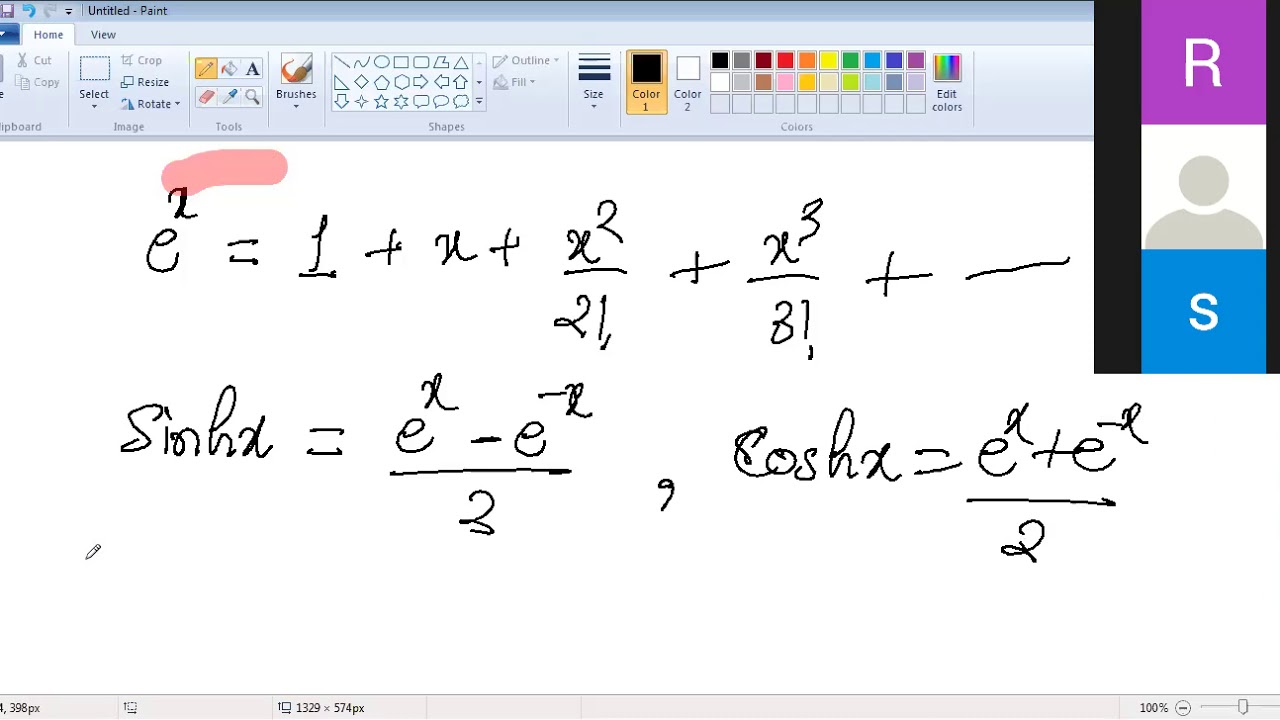 Untitled - Paint
Home View
Cut
Copy
Select
Crop
Resize
Rotate
A
Brushes
Outline
Fill
Size
Color 1
Color 2
Edit colors
lipboard
Image
Tools
Shapes
Colors
R
S
e^x = 1 + x + x^2/2! + x^3/3! + —
Sinhx = e^x - e^-x / 2 , Coshx = e^x + e^-x / 2
4, 398px
1329 × 574px
100%